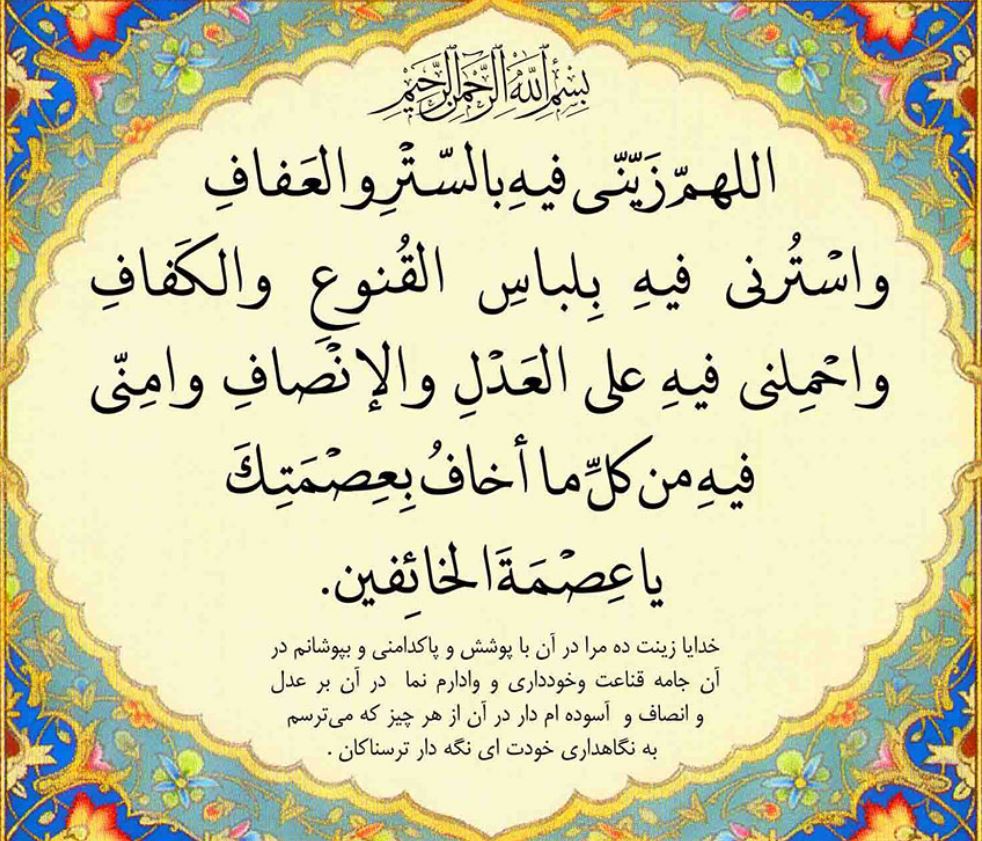 بِسْمِ اللَّهِ الرَّحْمَٰنِ الرَّحِيمِ
اللهمّ زَيّنّی فيهِ بالسّتْرِ والعَفافِ
واسْتُرنی فيهِ بِلباسِ القُنوعِ والكَفافِ
واحْمِلنی فيهِ علی العَدْلِ والإنْصافِ وامِنّی
فيهِ من كلِّ ما أخافُ بِعِصْمَتِكَ
يا عِصْمَةَ الخائِفين.
خدایا زینت ده مرا در آن با پوشش و پاکدامنی و بپوشانم در
آن جامه قناعت وخودداری و وادارم نما در آن بر عدل
و انصاف و آسوده ام دار در آن از هر چیز که می‌ترسم
به نگاهداری خودت ای نگه دار ترسناکان .